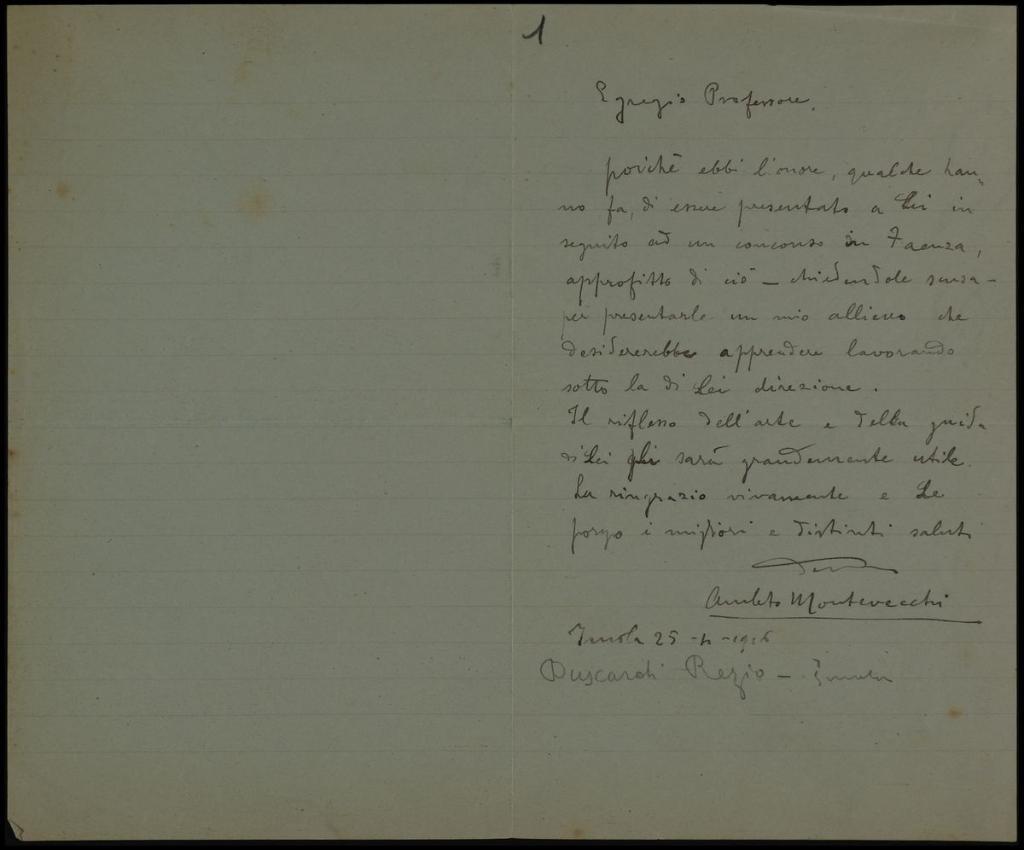 1
Egregio Professore,
poichè ebbi l'onore, qualche han-
no fa, di essere presentato a Lei in
seguito ad un concorso in Faenza,
approfitto di ciò — chiedendole scusa —
per presentarle un mio allievo che
desidererebbe apprendere lavorando
sotto la di Lei direzione.
Il riflesso dell'arte e della guida
di Lei gli sarà grandemente utile.
La ringrazio vivamente e Le
porgo i migliori e distinti saluti
Amleto Montevecchi
Imola 25
Regio — Imola